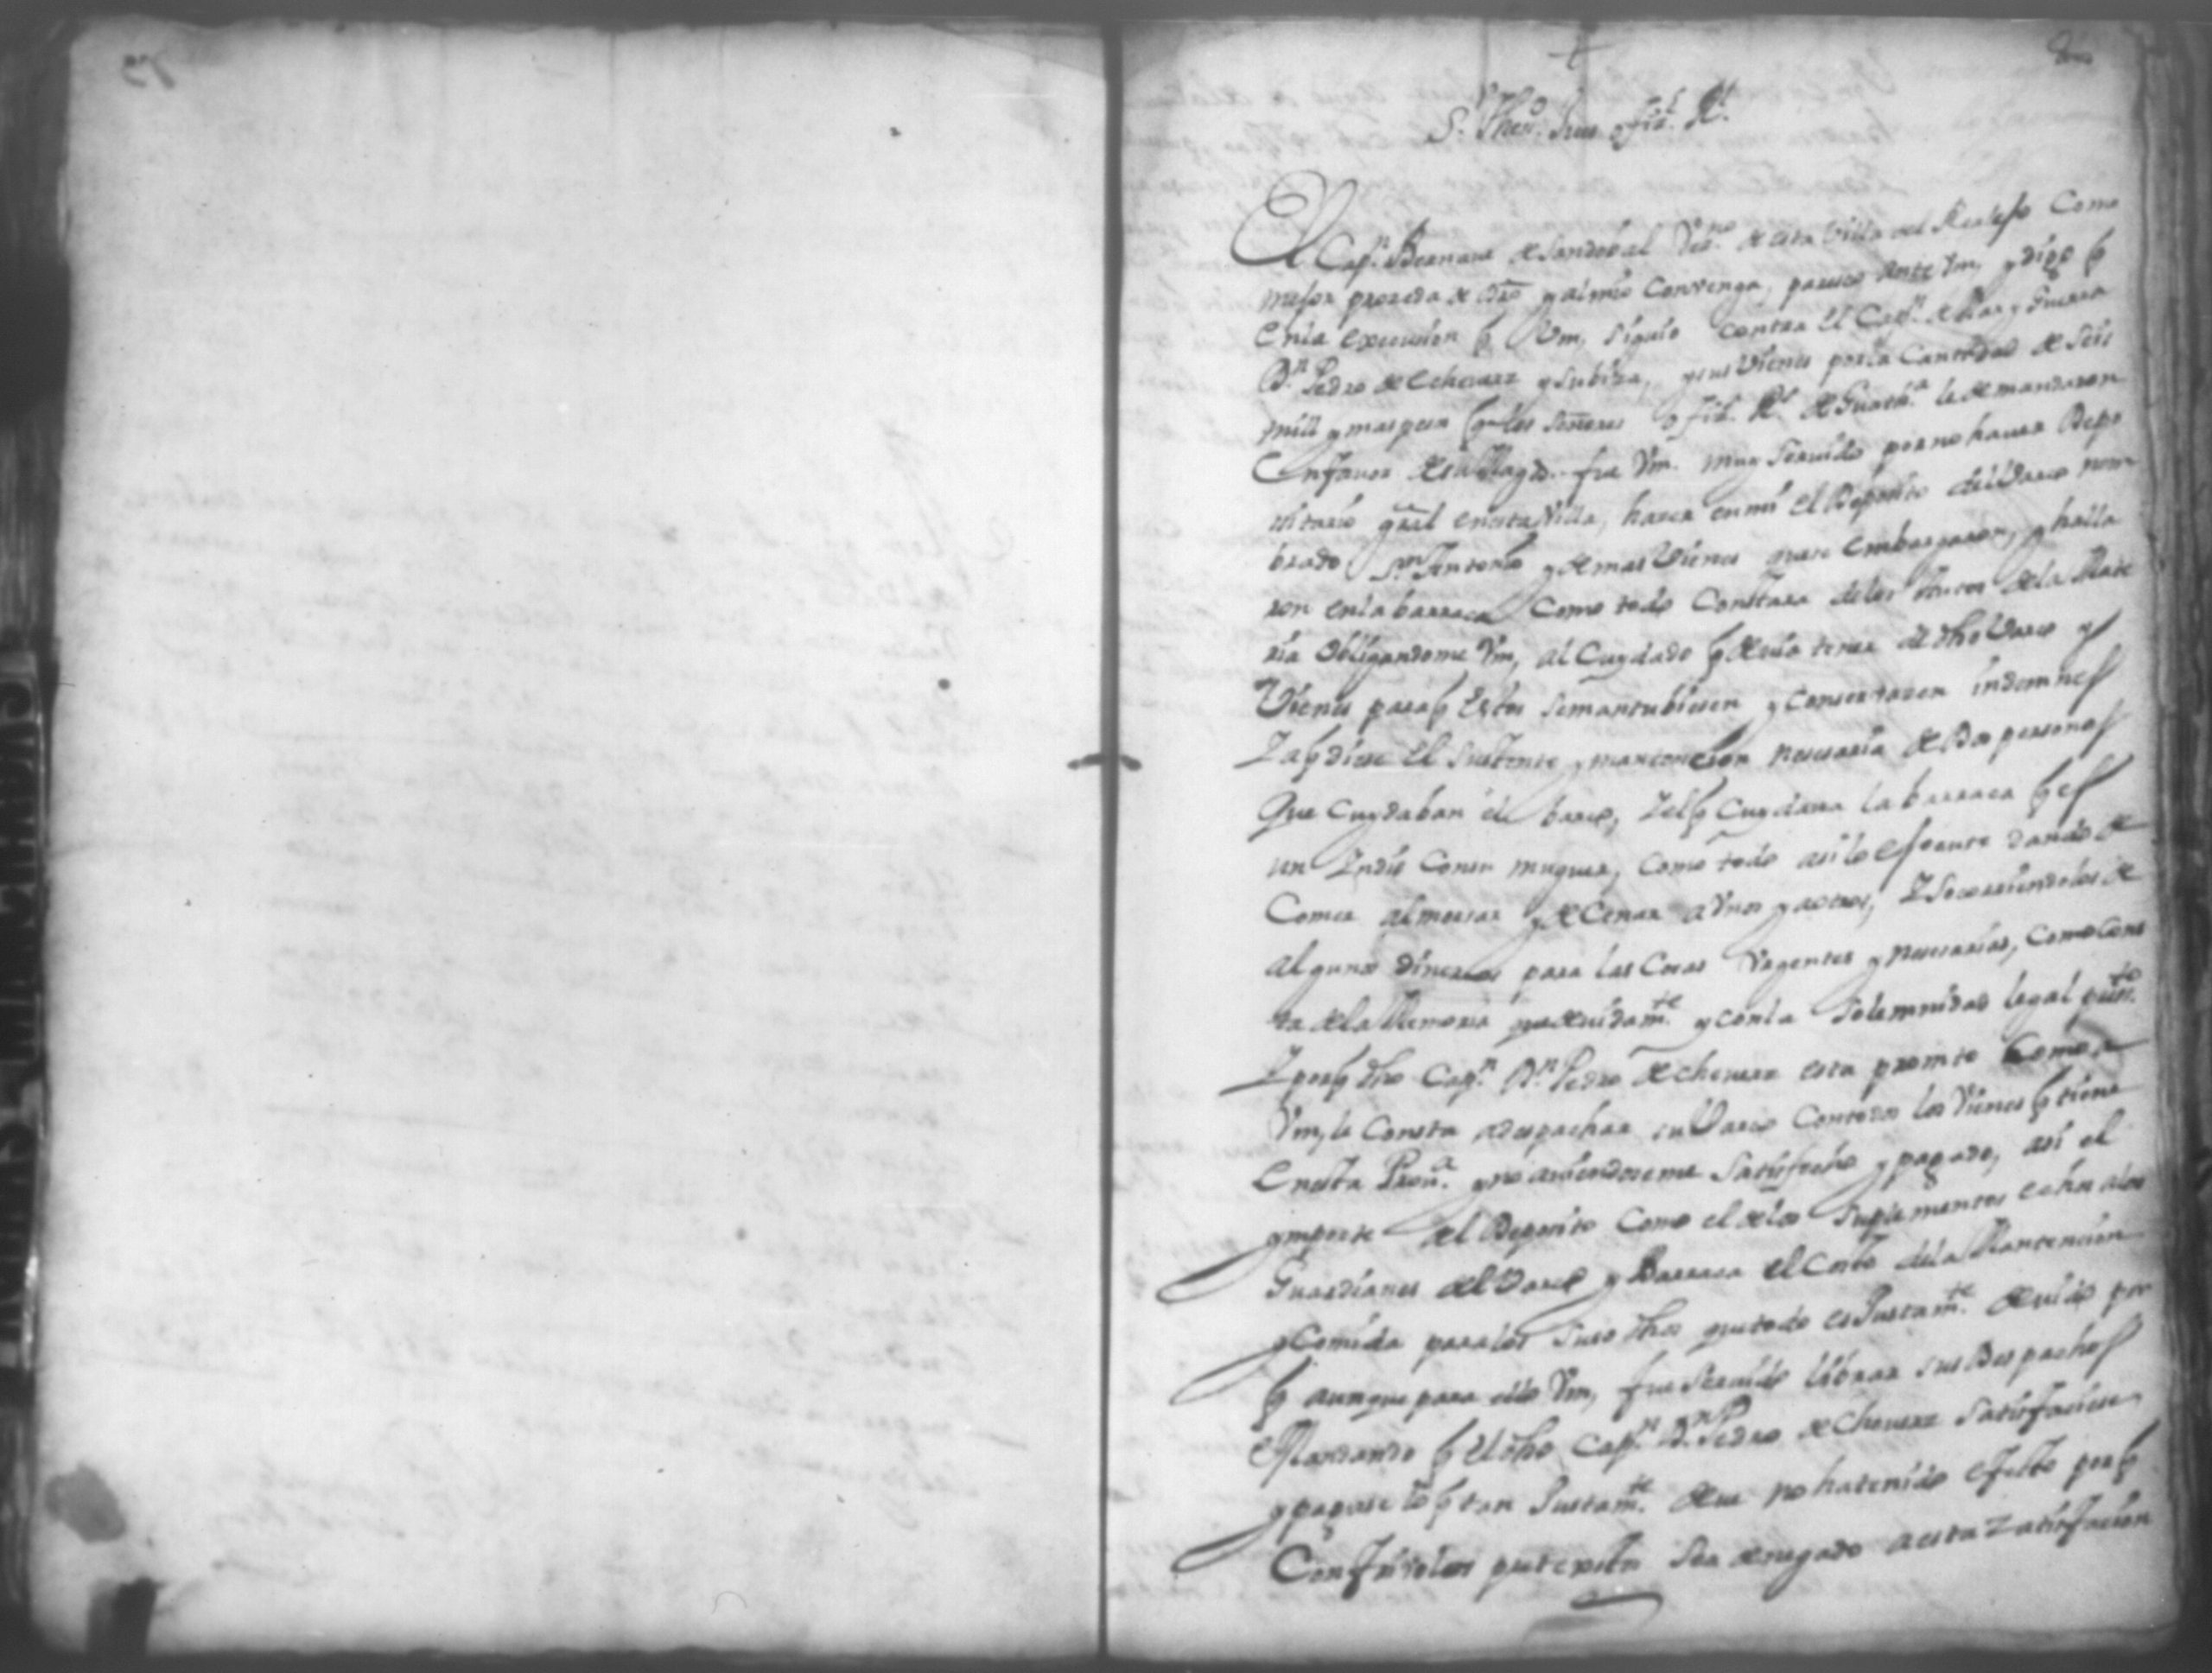 S.r Then.te Juez ofiz.l R.l
El Cap.n Bernaue de Sandobal Vez.no de esta Villa del Realejo Como
mejor proceda de dro y al mio Convenga, paresco ante Vm, y digo q
En la execucion q Vm, siguio contra el Cap.n de Mar y Guerra
D.n Pedro de Echeuerz y Subiza, y sus Vienes por la Cantidad de Seis
mill y mas pesos q los Señores ofiz.s R.s de Guath.a le demandaron
En fauor de su Mag.d fue Vm. muy Seruido por no hauer Depo
sitario gral en esta Villa, hacer en mi el Deposito del Varco nom
brado S.n Antonio y demas Vienes que se embargaron, y halla
ron en la barraca Como todo Constara de los Autos de la Mate
ria Obligandome Vm, al Cuydado q deuia tener de dho Varco y
Vienes para q Estos se mantubiesen y Conseruaran indemnes
Y a q diese El sustento y mantencion nesesaria de Dos personas
Que Cuydaban el barco, Y el q Cuydara la barraca q es
un Yndio Con su muguer, Como todo asi lo efectue dando de
Comer almorsar y de Cenar a Vnos y a otros, Y Socorriendolos de
algunos dineros para las Cosas Vrgentes y nesesarias, Como Cons
ta de la Memoria que deuidam.te y con la Solemnidad legal pres.to
Y por q dho Cap.n D.n Pedro de cheuerz esta promto Como a
Vm, le Consta a despachar su Varco Con todos los Vienes q tiene
En esta Prou.a y no auiendoseme Satisfecho y pagado, asi el
ymporte del Deposito Como el de los Suplementos echos a los
Guardianes del Varco y Barraca el Costo de la Mantencion
y Comida para los Suso dhos que todo es Justam.te deuido por
q aunque para ello Vm, fue Seruido librar sus Despachos
Mandando q el dho Cap.n D.n Pedro de Cheuerz Satisfaciese
y pagase lo q tan Justam.te deue no ha tenido efecto por q
Con friuolos pretextos Sea denegado a esta Zatisfacion